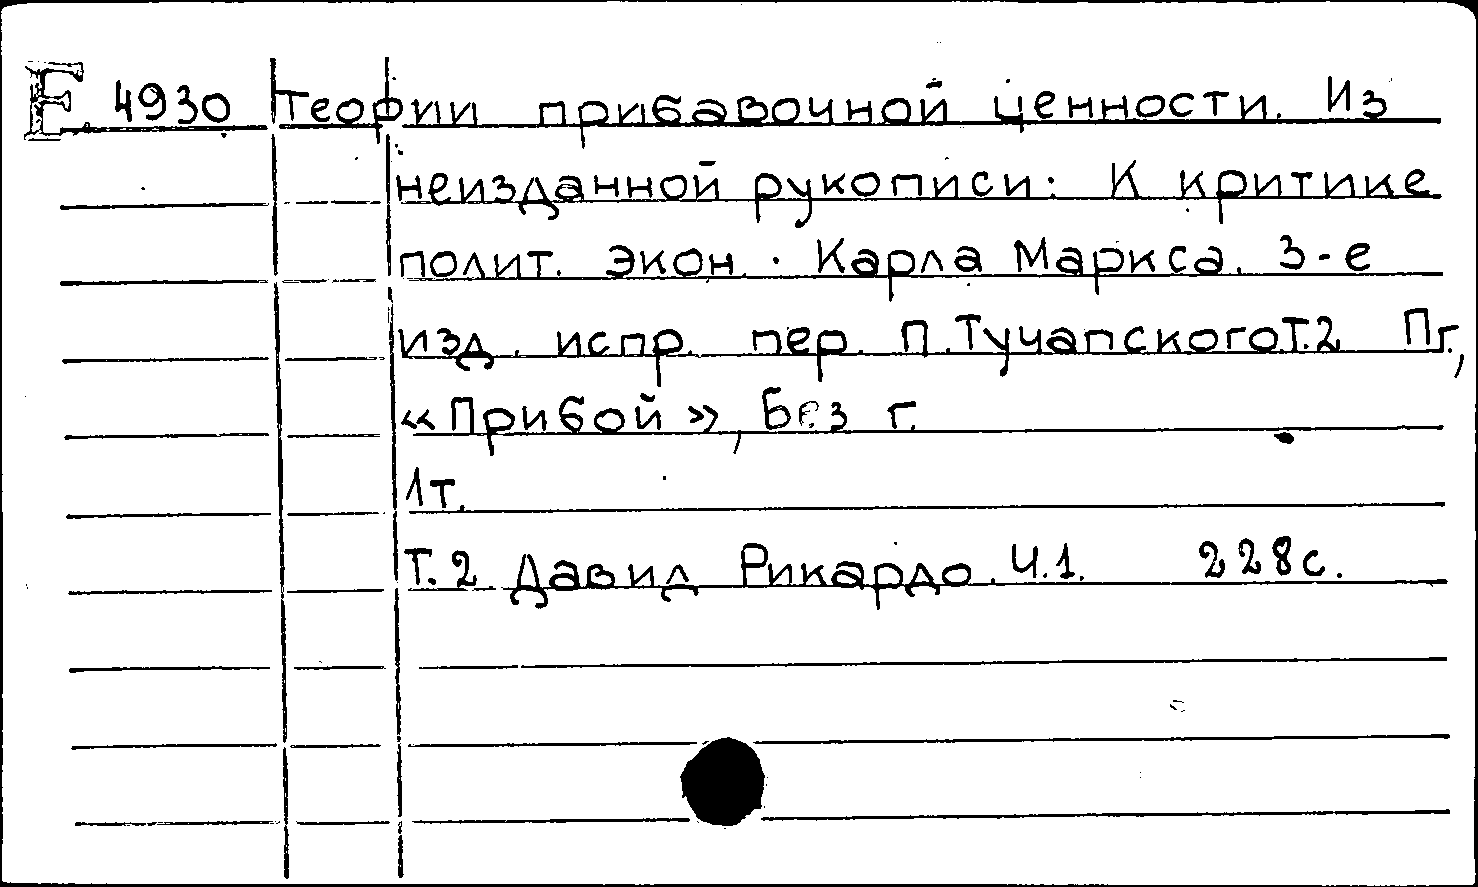 E 4930 Теории прибавочной ценности. Из
неизданной рукописи: К критике
полит. экон. Карла Маркса. 3-е
изд. испр. пер. П. Тучапского Т.2 Пг.,
«Прибой», Без г.
1 т.
Т. 2 Давид Рикардо. Ч.1. 228 с.